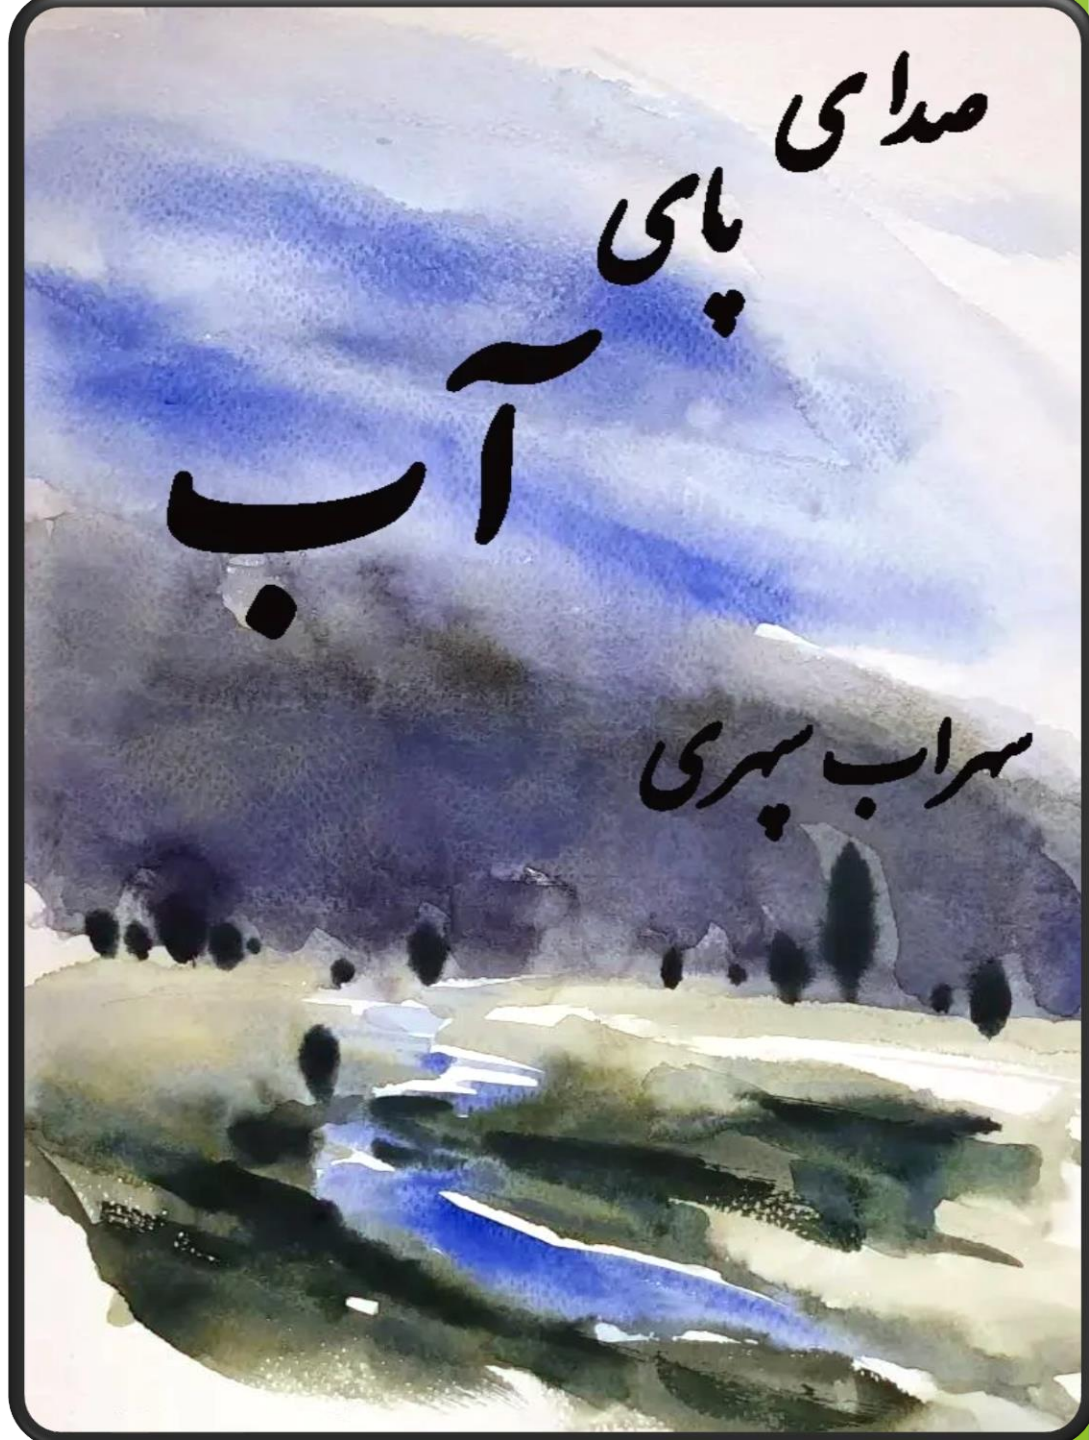 صدای
پای
آب
سهراب سپهری